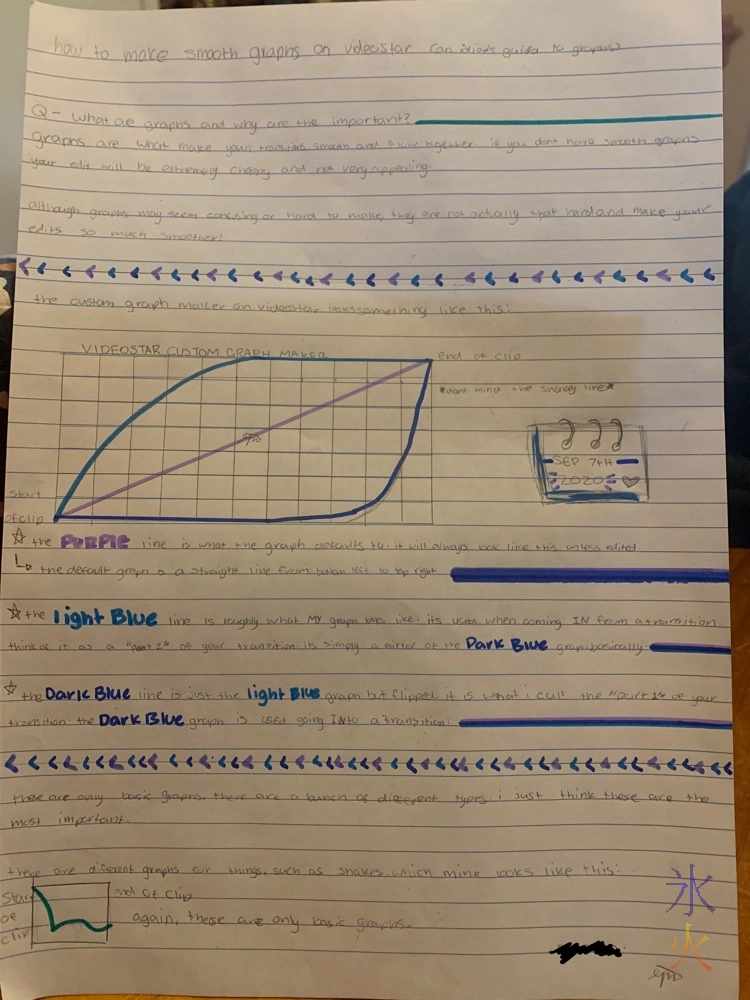 how to make smooth graphs on videostar
Q- what are graphs and why are the important?
graphs are what make your transitions smooth and flow together. if you dont have smooth graphs
your edit will be extremely choppy and not very appealing.
although graphs may seem confusing or hard to make, they are not actually that hard and make your
edits so much smoother!
the custom graph maker on videostar looks something like this:
VIDEOSTAR CUSTOM GRAPH MAKER
end of clip
*dont mind the shakey line*
SEP 7TH
2020
start
of clip
the PURPLE line is what the graph defaults to. it will always look like this unless edited.
the default graph is a straight line from bottom left to top right
the light Blue line is roughly what MY graph looks like. its used when coming IN from a transition.
think of it as a "part 2" of your tranzition. its simply a mirror of the Dark Blue graph basically.
the Dark Blue line is just the light Blue graph but flipped. it is what i call the "part 1" of your
transition. the Dark Blue graph is used going INTO a transition.
these are only basic graphs, there are a bunch of different types. i just think these are the
most important.
there are different graphs for things, such as shakes which mine looks like this:
Start
of
clip
end of clip
again, these are only basic graphs.
氷
火